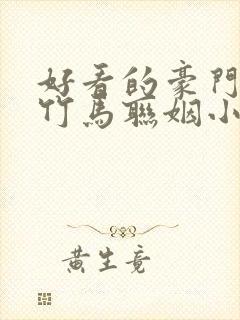 好看的豪門
竹馬聯姻小
黃生竟